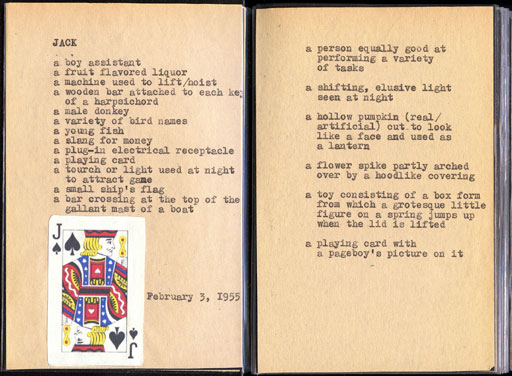 JACK
a boy assistant
a fruit flavored liquor
a machine used to lift/hoist
a wooden bar attached to each key
of a harpsichord
a male donkey
a variety of bird names
a young fish
a slang for money
a plug-in electrical receptacle
a playing card
a tourch or light used at night
to attract game
a small ship's flag
a bar crossing at the top of the
gallant mast of a boat
J
February 3, 1955
J
a person equally good at
performing a variety
of tasks
a shifting, elusive light
seen at night
a hollow pumpkin (real/
artificial) cut to look
like a face and used as
a lantern
a flower spike partly arched
over by a hoodlike covering
a toy consisting of a box form
from which a grotesque little
figure on a spring jumps up
when the lid is lifted
a playing card with
a pageboy's picture on it